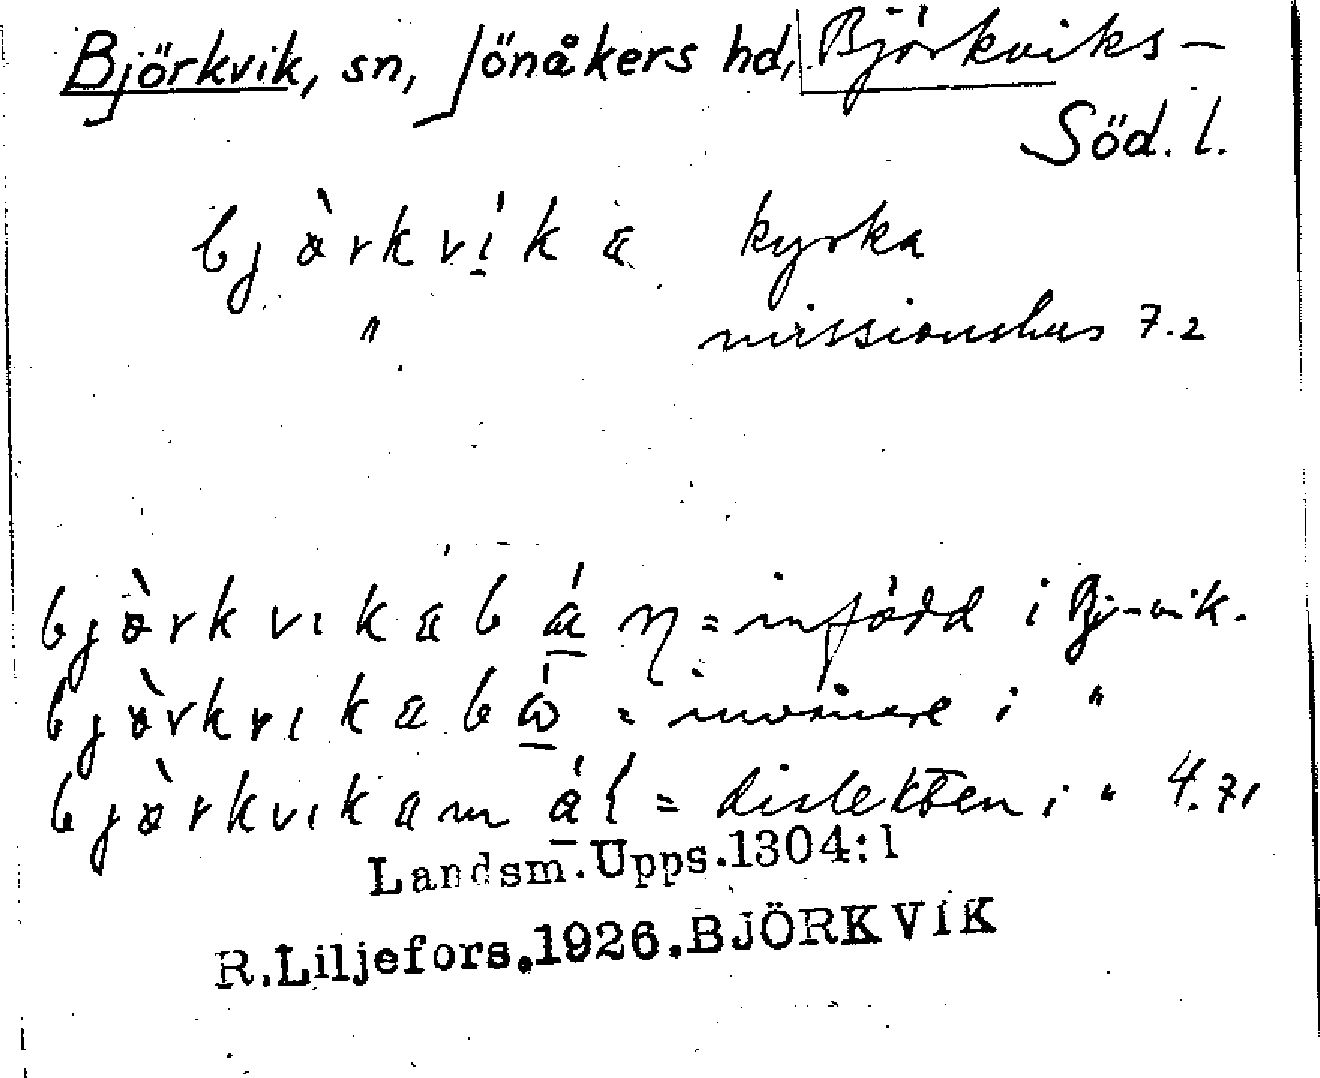 Björkvik, sn, Jönåkers hd, Björkviks-
Söd. l.
bjö̀rkvík a kyrka
" missionshus 7.2
bjö̀rkvikabá = infödd i Bj-vik.
bjö̀rkvikabó = invånare i "
bjö̀rkvikamål = dialekten i " 4.71
Landsm.Upps.1304:1
R.Liljefors.1926.BJÖRKVIK